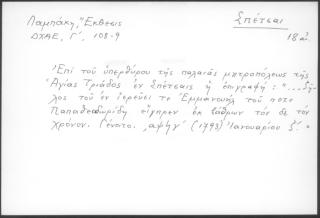 Λαμπάκη, "Έκθεσις
ΔΧΑΕ, Γ΄, 108-9
Σπέτσαι
18 αἰ.
"Ἐπί τοῦ ὑπερθύρου τῆς παλαιᾶς μητροπόλεως τῆς
Ἁγίας Τριάδος ἐν Σπέτσαις ἡ ἐπιγραφή: "...
λος τοῦ ἐν ἱερεῦσι τε Ἐμμανουήλ τοῦ ποτε
Παπαθεοδωρίδη εἴγηρεν ἐκ βάθρων τόν δε τόν
χρόνον. Γένατο. ͵αψϟγ΄ (1793) Ἰανουαρίου ζ΄."